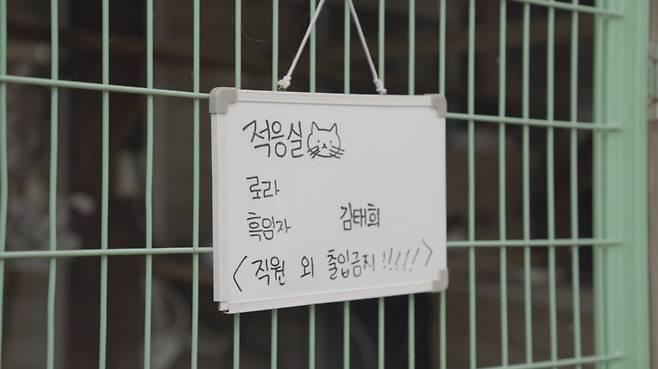 적응실
로라
흑임자 김태희
<직원 외 출입금지!!!!!>